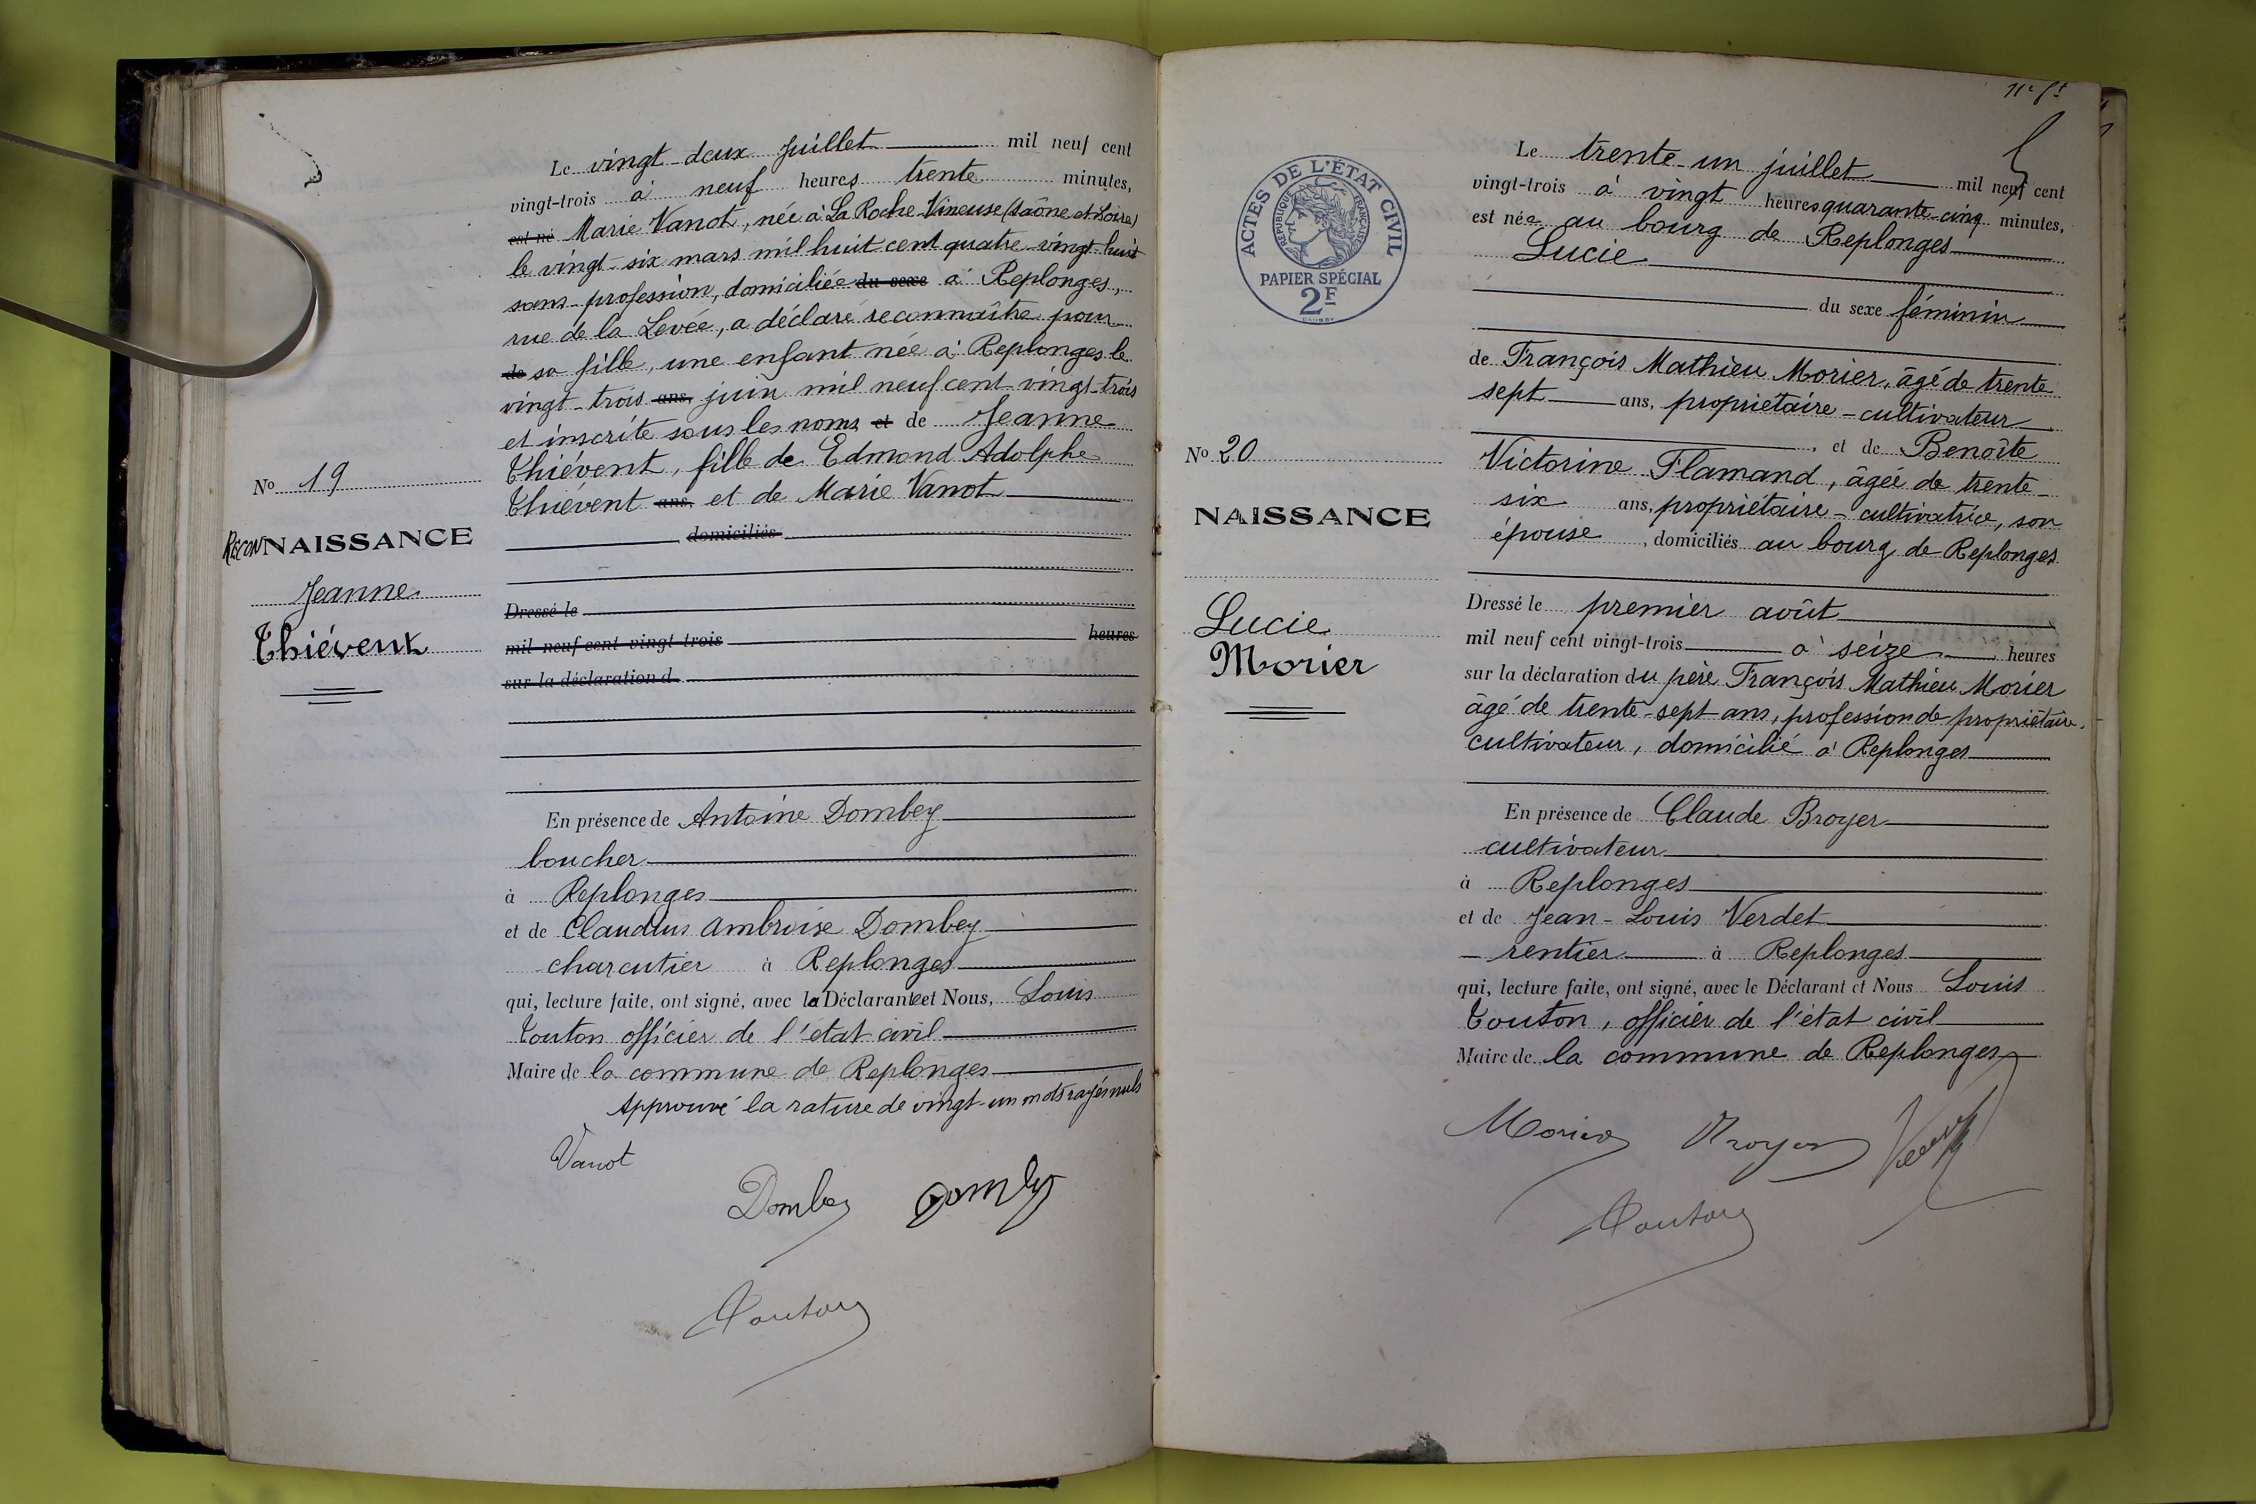 Le vingt-deux juillet mil neuf cent
vingt-trois à neuf heures trente minutes,
est né Marie Vanot, née à La Roche-Vineuse (Saône et Loire)
le vingt-six mars mil huit cent quatre-vingt-huit
sans profession, domiciliée du sexe à Replonges,
rue de la Levée, a déclaré reconnaître pour
de sa fille, une enfant née à Replonges le
vingt-trois ans, juin mil neuf cent vingt-trois
et inscrite sous les noms et de Jeanne
Thiévent, fille de Edmond Adolphe
Thiévent ans, et de Marie Vanot
domiciliés
Dressé le
mil neuf cent vingt-trois heures
sur la déclaration d
En présence de Antoine Dombey
boucher
à Replonges
et de Claudius Ambroise Dombey
charcutier à Replonges
qui, lecture faite, ont signé, avec la Déclarante et Nous, Louis
Touton officier de l'état civil
Maire de la commune de Replonges
Approuvé la rature de vingt-un mots rayés nuls
Vanot
Dombey Dombey
Touton
No 19
RECONNAISSANCE
Jeanne
Thiévent
ACTES DE L'ÉTAT CIVIL
RÉPUBLIQUE FRANÇAISE
PAPIER SPÉCIAL
2F
No 20
NAISSANCE
Lucie
Morier
Le trente-un juillet mil neuf cent
vingt-trois à vingt heures quarante-cinq minutes,
est née au bourg de Replonges
Lucie
du sexe féminin
de François Mathieu Morier, âgé de trente
sept ans, propriétaire-cultivateur
, et de Benoîte
Victorine Flamand, âgée de trente-
six ans, propriétaire-cultivatrice, son
épouse, domiciliés au bourg de Replonges
Dressé le premier août
mil neuf cent vingt-trois à seize heures
sur la déclaration du père François Mathieu Morier
âgé de trente-sept ans, profession de propriétaire-
cultivateur, domicilié à Replonges
En présence de Claude Broyer
cultivateur
à Replonges
et de Jean-Louis Verdet
rentier à Replonges
qui, lecture faite, ont signé, avec le Déclarant et Nous Louis
Touton, officier de l'état civil
Maire de la commune de Replonges
Morier Broyer
Touton